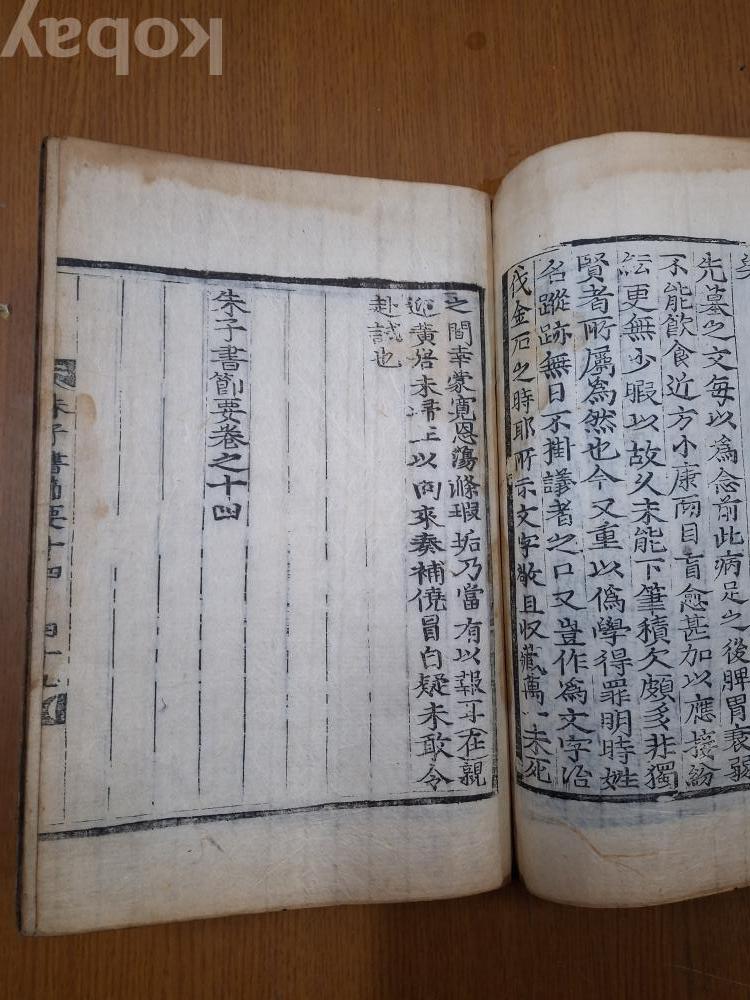 kobay
先墓之文每以為念前此病足之後脾胃衰弱
不能飲食近方小康兩目盲愈甚加以應接紛
紜更無少暇以故久未能下筆積欠頗多非獨
賢者所屬為然也今又重以偽學得罪明時姓
名蹤跡無日不掛議者之口又豈作為文字冶
伐金石之時耶所示文字敬且收藏萬一未死
之間幸蒙寬恩蕩滌瑕垢乃當有以報耳在親
迎黃婿未歸上以向來奏補僥冒自疑未敢令
赴試也
朱子書節要卷之十四
朱子書節要十四 四十七